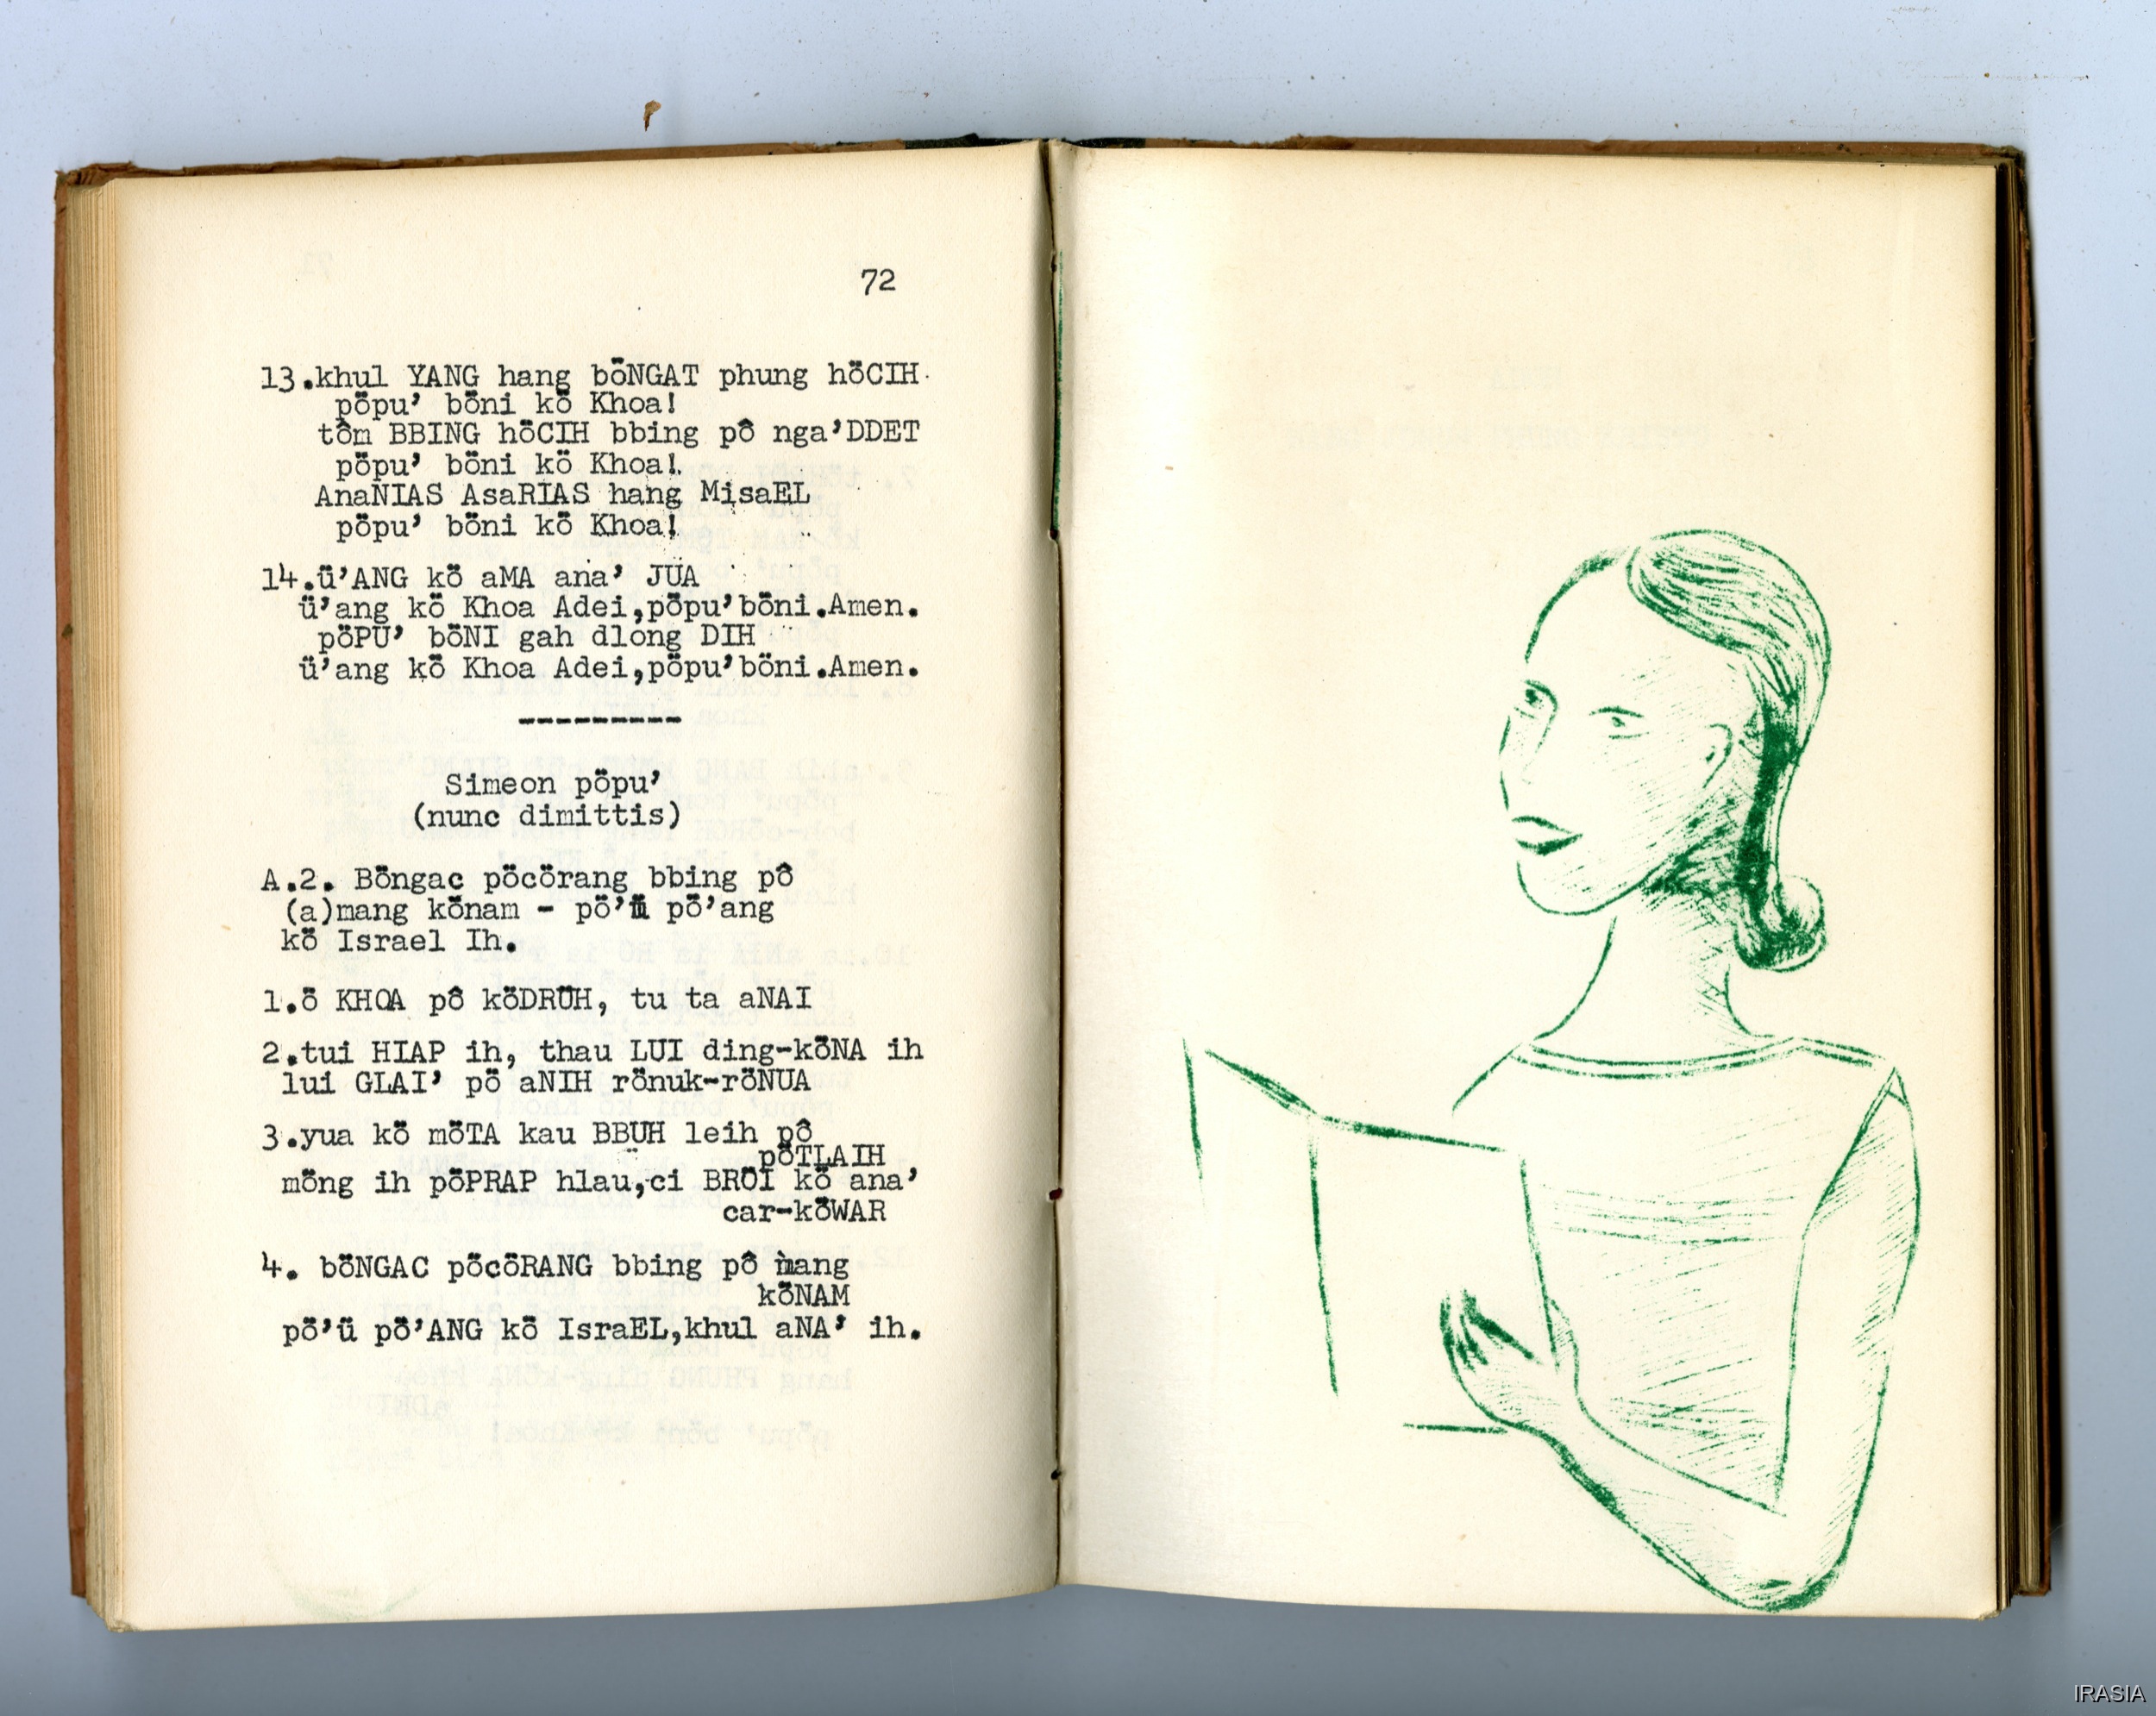 72
13.khul YANG hang böNGAT phung höCIH
pöpu’ böni kö Khoa!
tôm BBING höCIH bbing pô nga’DDET
pöpu’ böni kö Khoa!
AnaNIAS AsaRIAS hang MisaEL
pöpu’ böni kö Khoa!
14.ü’ANG kö aMA ana’ JUA
ü’ang kö Khoa Adei,pöpu’böni.Amen.
pöPU’ böNI gah dlong DIH
ü’ang kö Khoa Adei,pöpu’böni.Amen.
---------
Simeon pöpu’
(nunc dimittis)
A.2. Böngac pöcörang bbing pô
(a)mang könam - pö’ü pö’ang
kö Israel Ih.
1.ö KHOA pô köDRÜH, tu ta aNAI
2.tui HIAP ih, thau LUI ding-köNA ih
lui GLAI’ pö aNIH rönuk-röNUA
3.yua kö möTA kau BBUH leih pô
pöTLAIH
möng ih pöPRAP hlau,ci BRÖI kö ana’
car-köWAR
4. böNGAC pöcöRANG bbing pô mang
köNAM
pö’ü pö’ANG kö IsraEL,khul aNA’ ih.
IRASIA